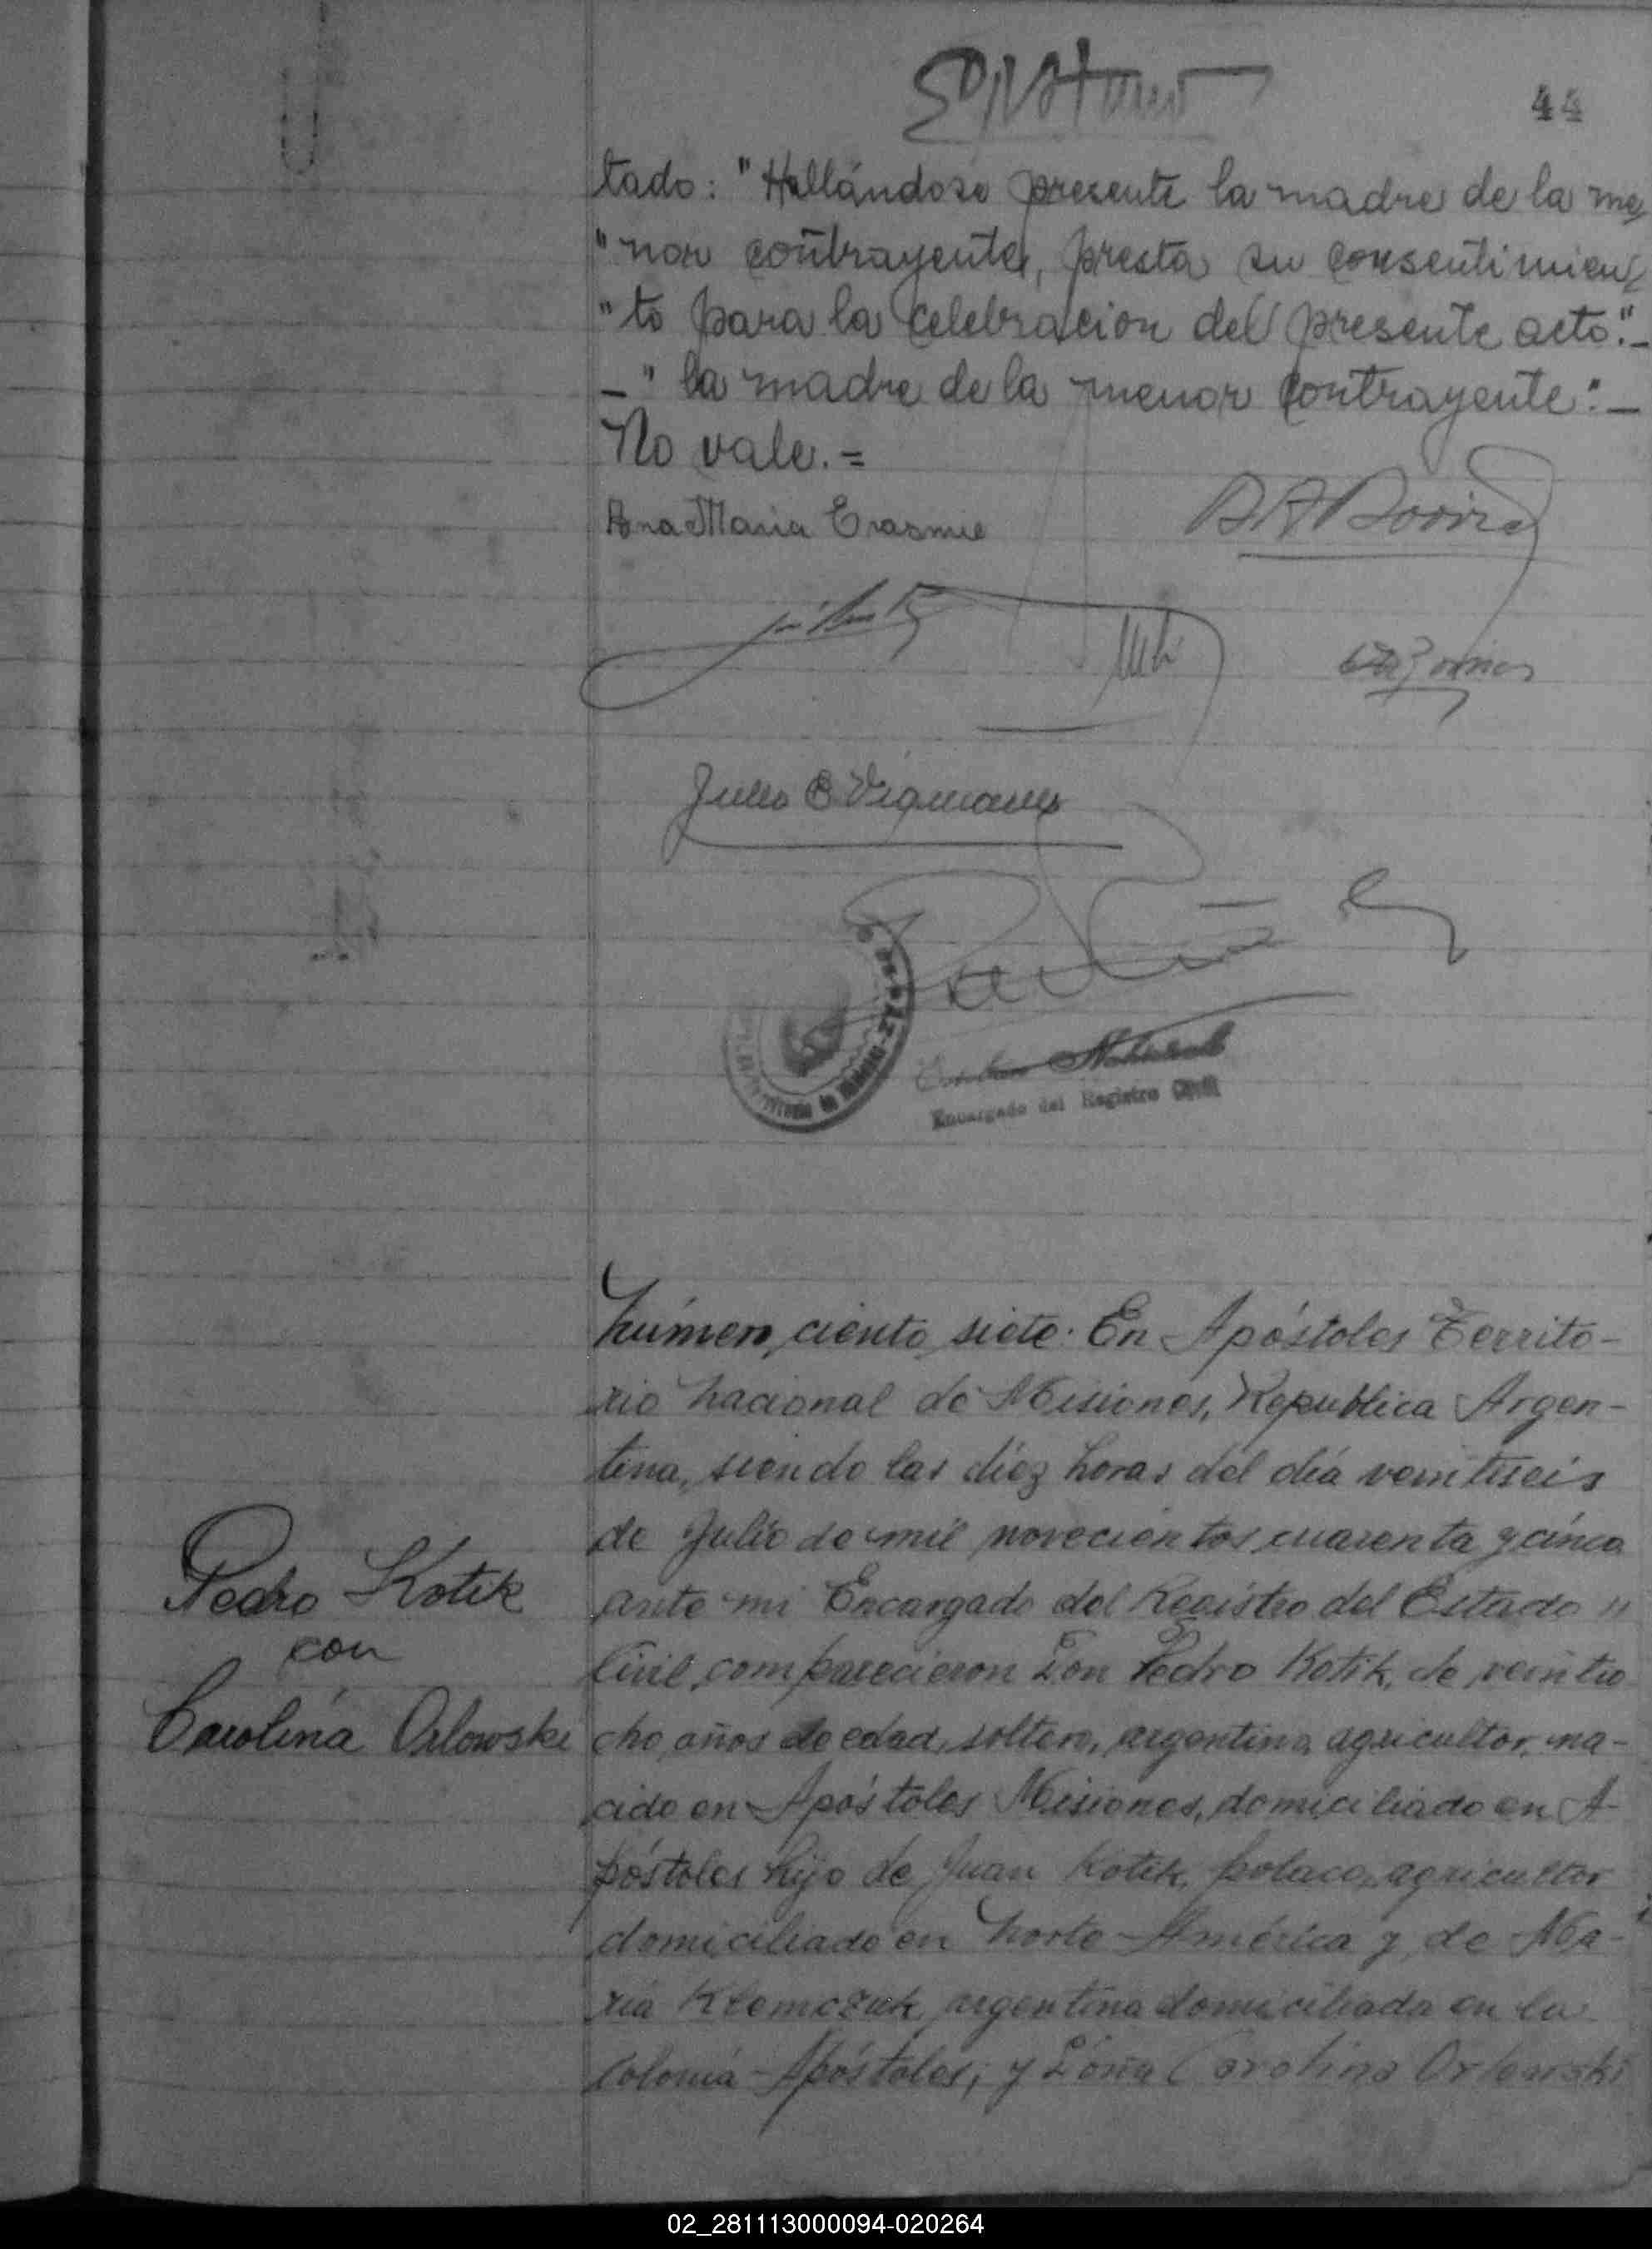 44
tado: "Hallándose presente la madre de la me
"nor contrayente, presta su consentimien
"to para la celebracion del presente acto."_
_" la madre de la menor contrayente":_
No vale.=
Ana Maria Erasmie
Encargado del Registro Civil
Número ciento siete. En Apóstoles Territo-
rio Nacional de Misiones, Republica Argen-
tina, siendo las diéz horas del día veintiseis
de Julio de mil novecientos cuarenta y cinco
ante mi Encargado del Registro del Estado "
Civil, comparecieron Don Pedro Kotik, de veintio
cho años de edad, soltero, argentino, agricultor, na-
cido en Apóstoles Misiones, domiciliado en A-
póstoles hijo de Juan Kotik, polaco, agricultor
domiciliado en Norte-América y de Ma-
ria Klemczuk argentina domiciliada en la
Colonia Apóstoles; y Doña Carolina Orlowski
Pedro Kotik
con
Carolina Orlowski
02_281113000094-020264